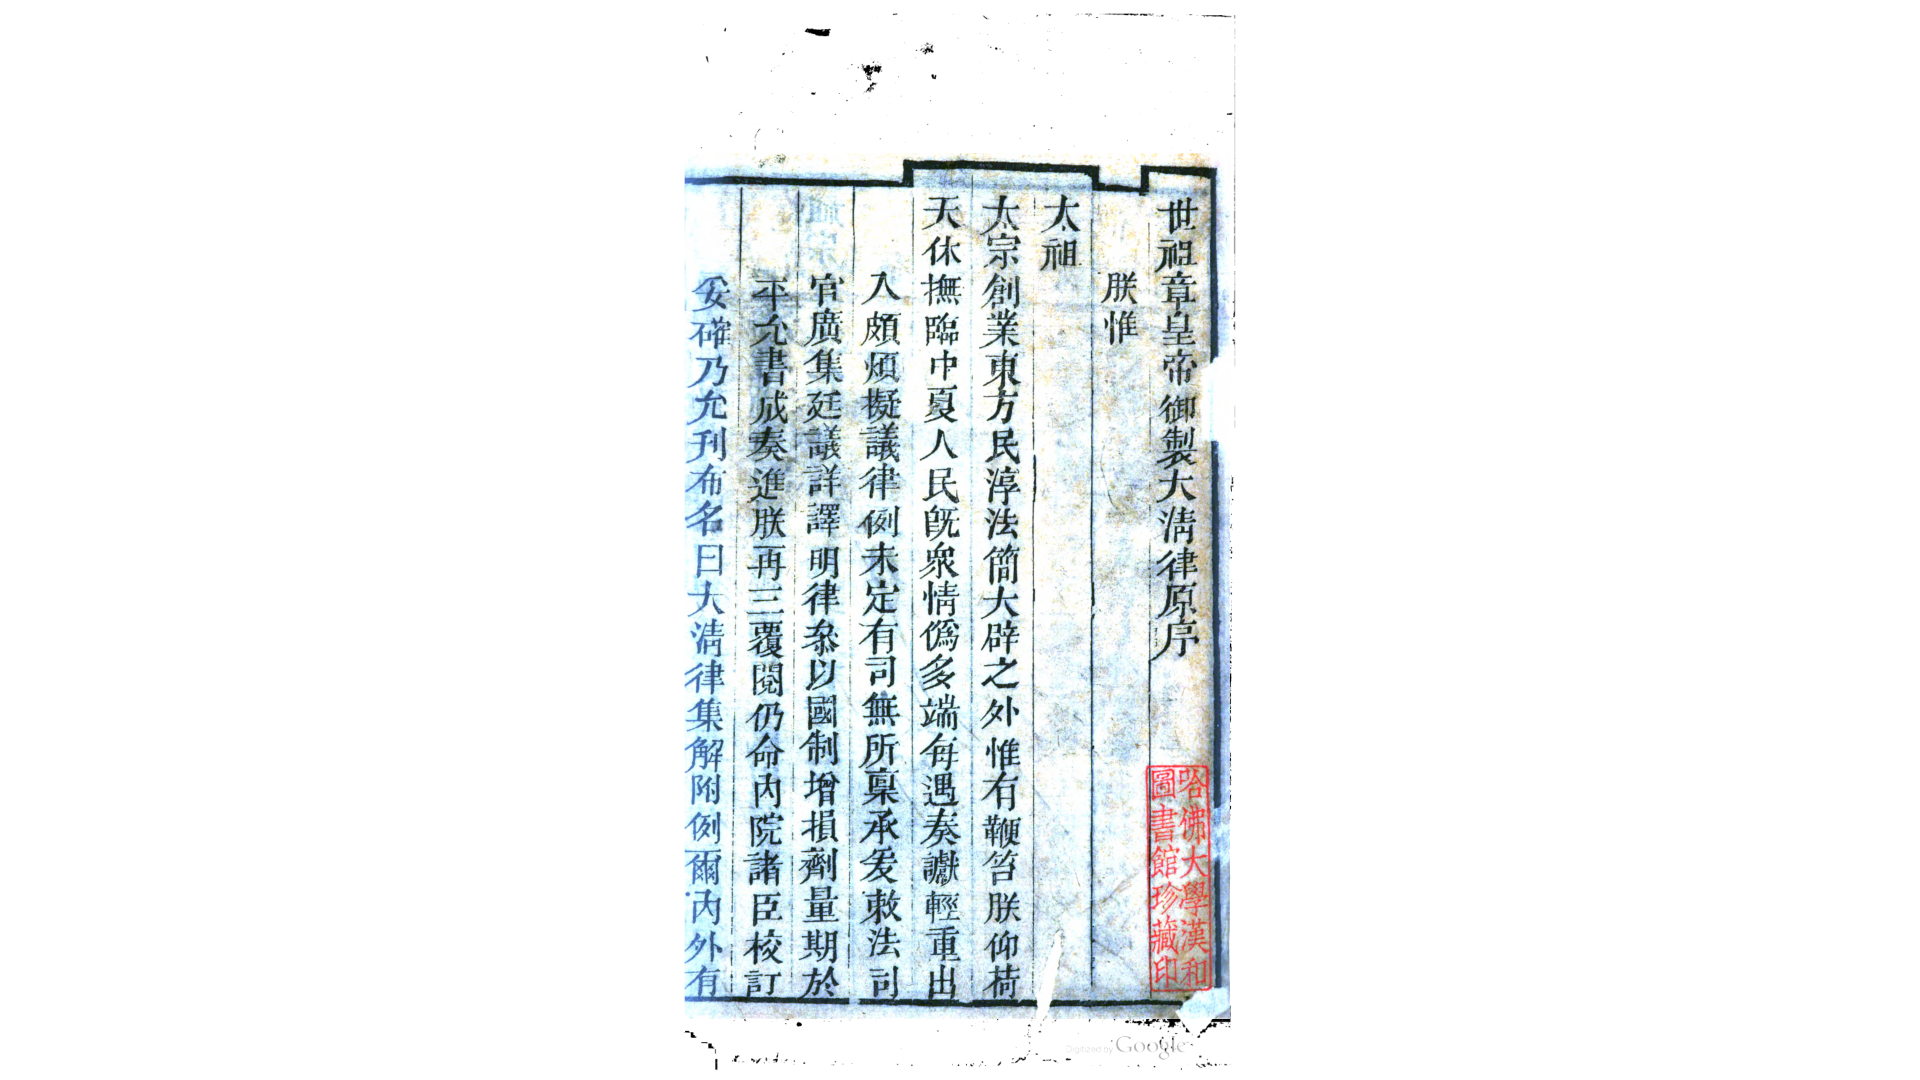 世祖章皇帝御製大淸律原序
朕惟
太祖
太宗創業東方民淳法簡大辟之外惟有鞭笞朕仰荷
天休撫臨中夏人民旣衆情僞多端每遇奏讞輕重出
入頗煩擬議律例未定有司無所稟承爰敕法司
官廣集廷議詳譯明律叅以國制增損劑量期於
平允書成奏進朕再三覆閱仍命內院諸臣校訂
妥確乃允刊布名曰大淸律集解附例爾內外有
哈佛大學漢和
圖書館珍藏印
Digitized by Google